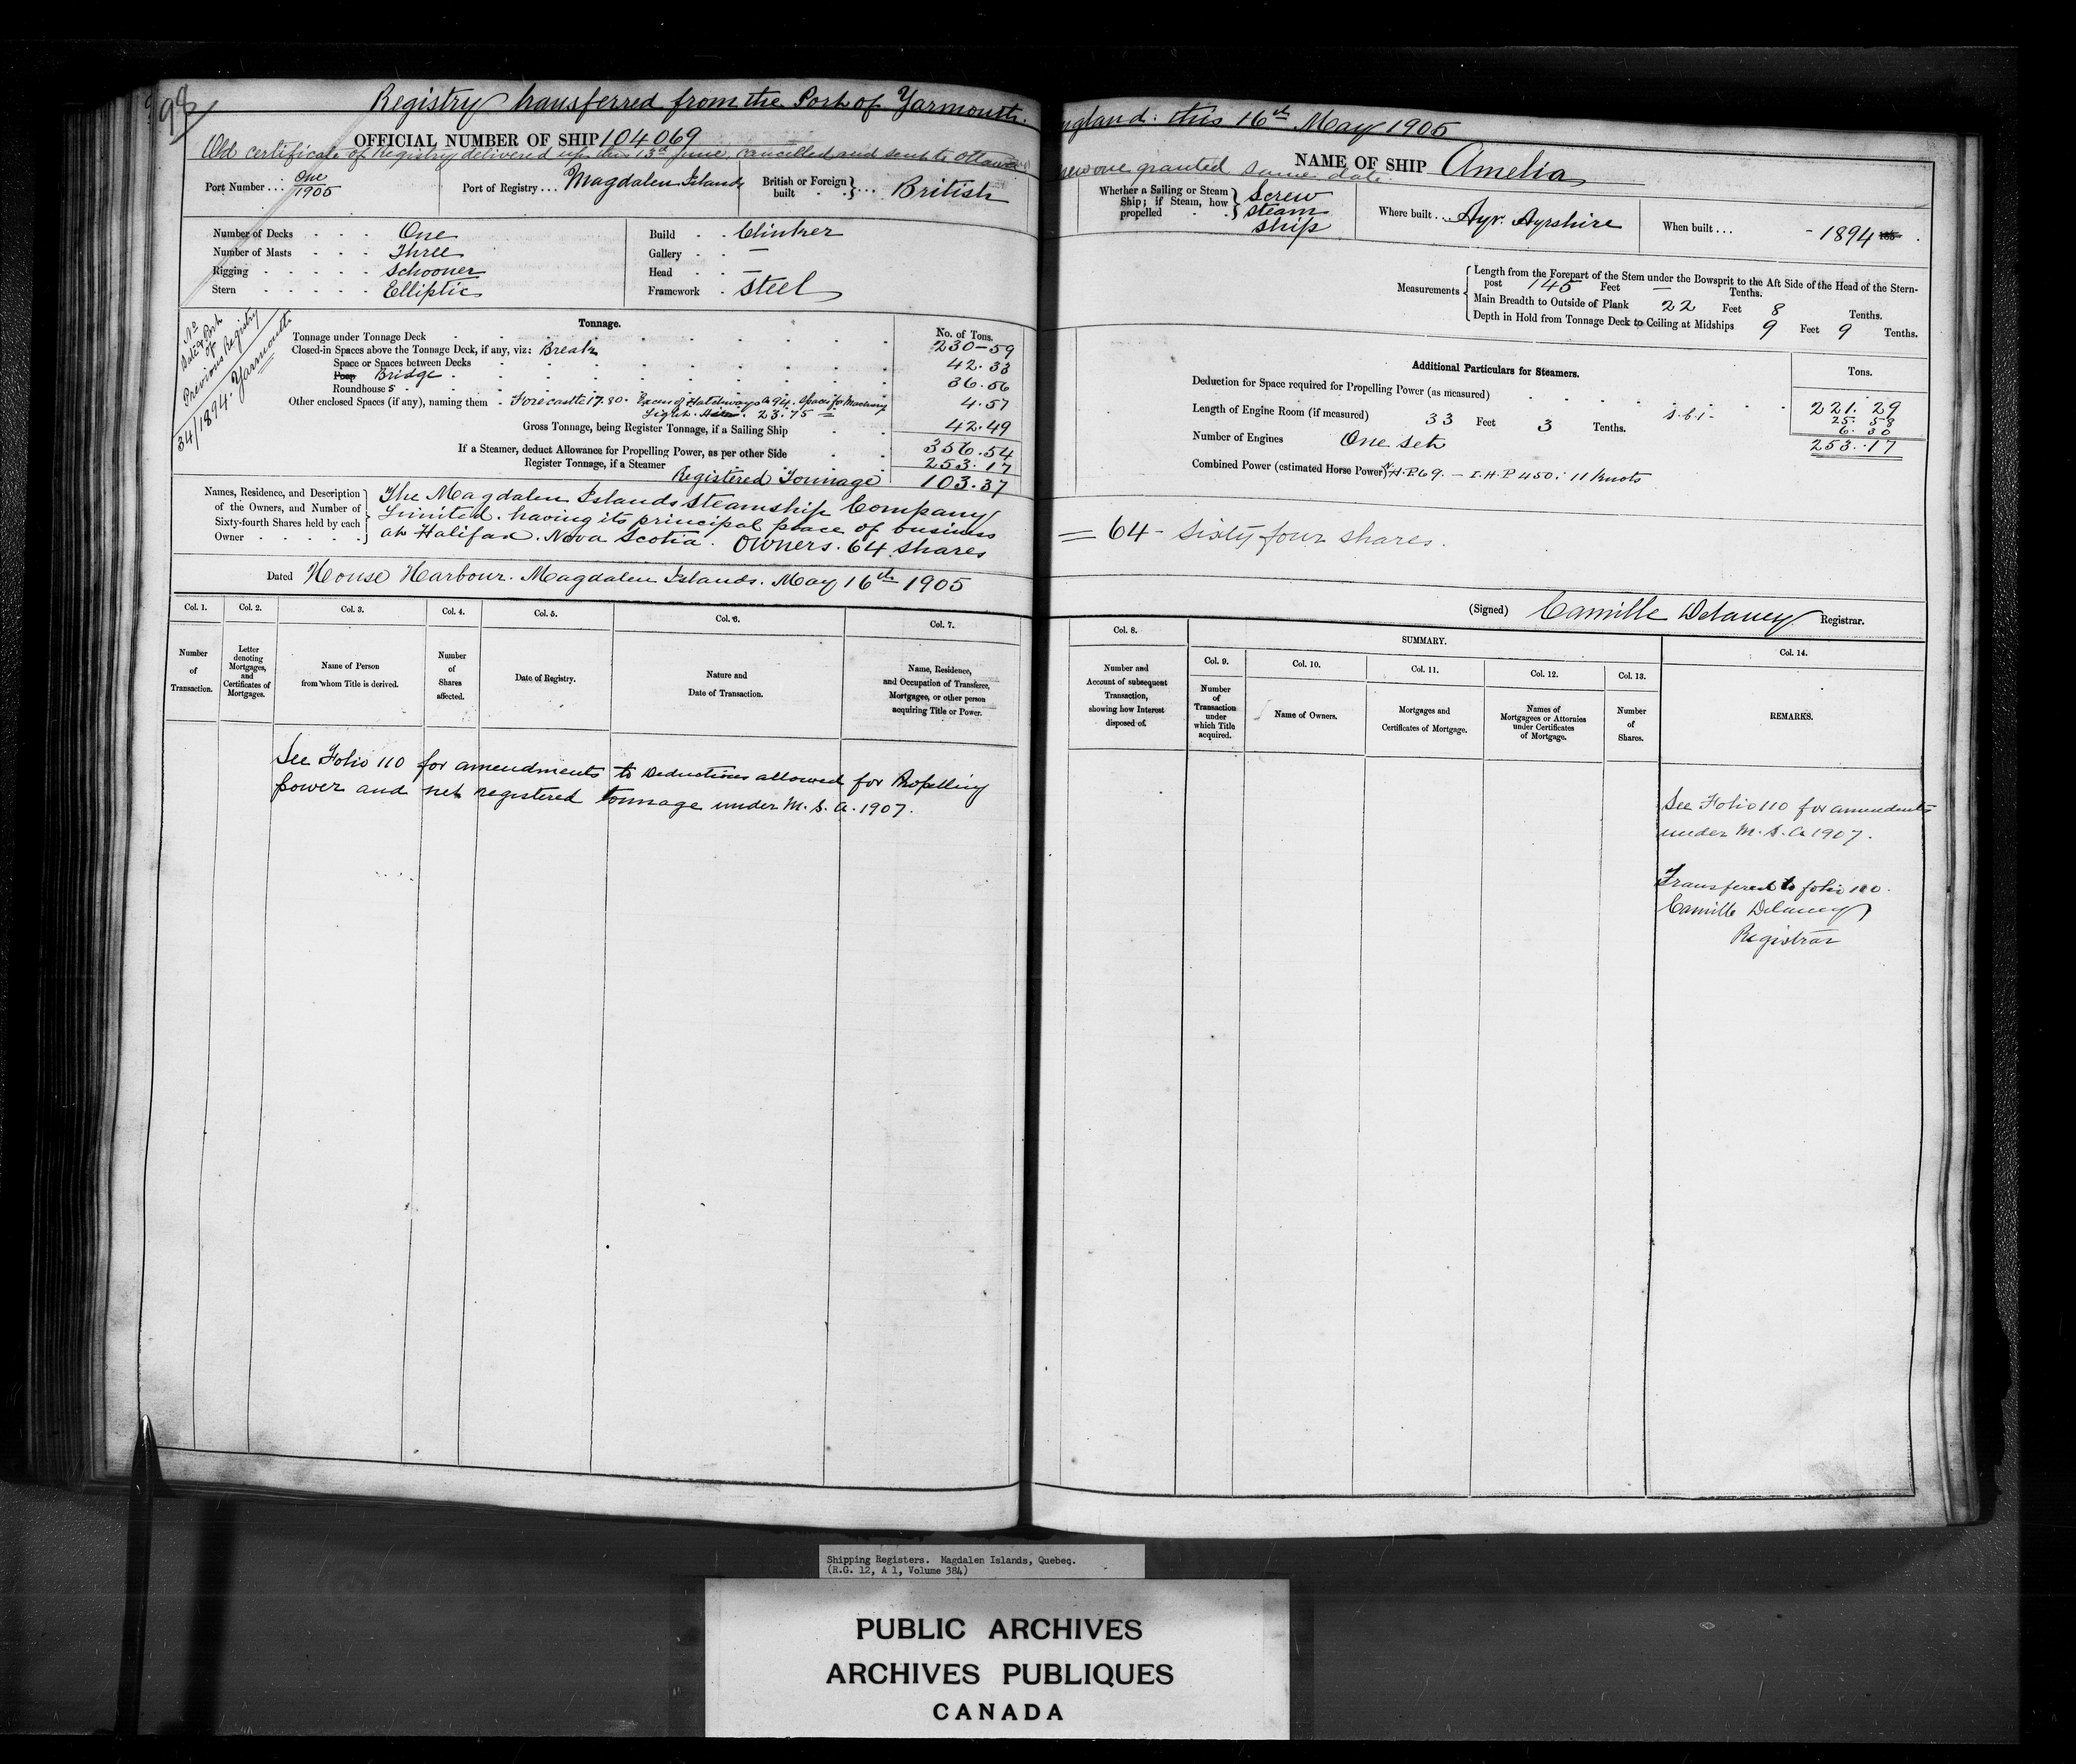 98
Registry transferred from the Port of Yarmouth.
OFFICIAL NUMBER OF SHIP 104069
Old certificate of Registry delivered up this 13d June, cancelled and sent to Ottawa
Port Number . . . One 1905
Port of Registry . . . Magdalen Islands
British or Foreign built } . . . British
Number of Decks . . . One
Number of Masts . . . Three
Rigging . . . . . Schooner
Stern . . . . . Elliptic
Build . . Clinker
Gallery . . —
Head . . —
Framework . Steel
No Date & Port of Previous Registry
34/1894. Yarmouth
Tonnage.
No. of Tons.
Tonnage under Tonnage Deck 230-59
Closed-in Spaces above the Tonnage Deck, if any, viz: Break
Space or Spaces between Decks 42.33
Poop Bridge 36.56
Roundhouse s 4.57
Other enclosed Spaces (if any), naming them - Forecastle 17.80. Excess of Hatchways 0.94. Spaces for Machinery
Light. 23.75 =
42.49
Gross Tonnage, being Register Tonnage, if a Sailing Ship
356.54
If a Steamer, deduct Allowance for Propelling Power, as per other Side 253.17
Register Tonnage, if a Steamer
Registered Tonnage 103.37
Names, Residence, and Description of the Owners, and Number of Sixty-fourth Shares held by each Owner
The Magdalen Islands Steamship Company
Limited. having its principal place of business
at Halifax. Nova Scotia. Owners. 64 shares
Dated House Harbour. Magdalen Islands. May 16th 1905
Col. 1. Col. 2. Col. 3. Col. 4. Col. 5. Col. 6. Col. 7.
Number of Transaction.
Letter denoting Mortgages, and Certificates of Mortgages.
Name of Person from whom Title is derived.
Number of Shares affected.
Date of Registry.
Nature and Date of Transaction.
Name, Residence, and Occupation of Transferee, Mortgagee, or other person acquiring Title or Power.
See Folio 110 for amendments to Deductions allowed for Propelling
power and net registered tonnage under M. S. A. 1907.
ngland. this 16th May 1905
NAME OF SHIP Amelia
new one granted same date.
Whether a Sailing or Steam Ship; if Steam, how propelled } Screw steam ship
Where built . . Ayr. Ayrshire
When built . . . - 1894 185 .
Measurements
Length from the Forepart of the Stem under the Bowsprit to the Aft Side of the Head of the Stern-
post 145 Feet — Tenths.
Main Breadth to Outside of Plank 22 Feet 8 Tenths.
Depth in Hold from Tonnage Deck to Ceiling at Midships 9 Feet 9 Tenths.
Additional Particulars for Steamers.
Tons.
Deduction for Space required for Propelling Power (as measured) 221. 29
Length of Engine Room (if measured) 33 Feet 3 Tenths. 25. 58
6. 30
Number of Engines One set 253.17
Combined Power (estimated Horse Power) N.H.P. 69. — I.H.P 450. 11 Knots
= 64 - Sixty four shares.
(Signed) Camille Delaney Registrar.
Col. 8.
SUMMARY.
Col. 9. Col. 10. Col. 11. Col. 12. Col. 13. Col. 14.
Number and Account of subsequent Transaction, showing how Interest disposed of.
Number of Transaction under which Title acquired.
Name of Owners.
Mortgages and Certificates of Mortgage.
Names of Mortgagees or Attornies under Certificates of Mortgage.
Number of Shares.
REMARKS.
See Folio 110 for amendments
under M. S. A 1907.
Transfered to folio 110.
Camille Delaney
Registrar
Shipping Registers. Magdalen Islands, Quebec.
(R.G. 12, A 1, Volume 384)
PUBLIC ARCHIVES
ARCHIVES PUBLIQUES
CANADA